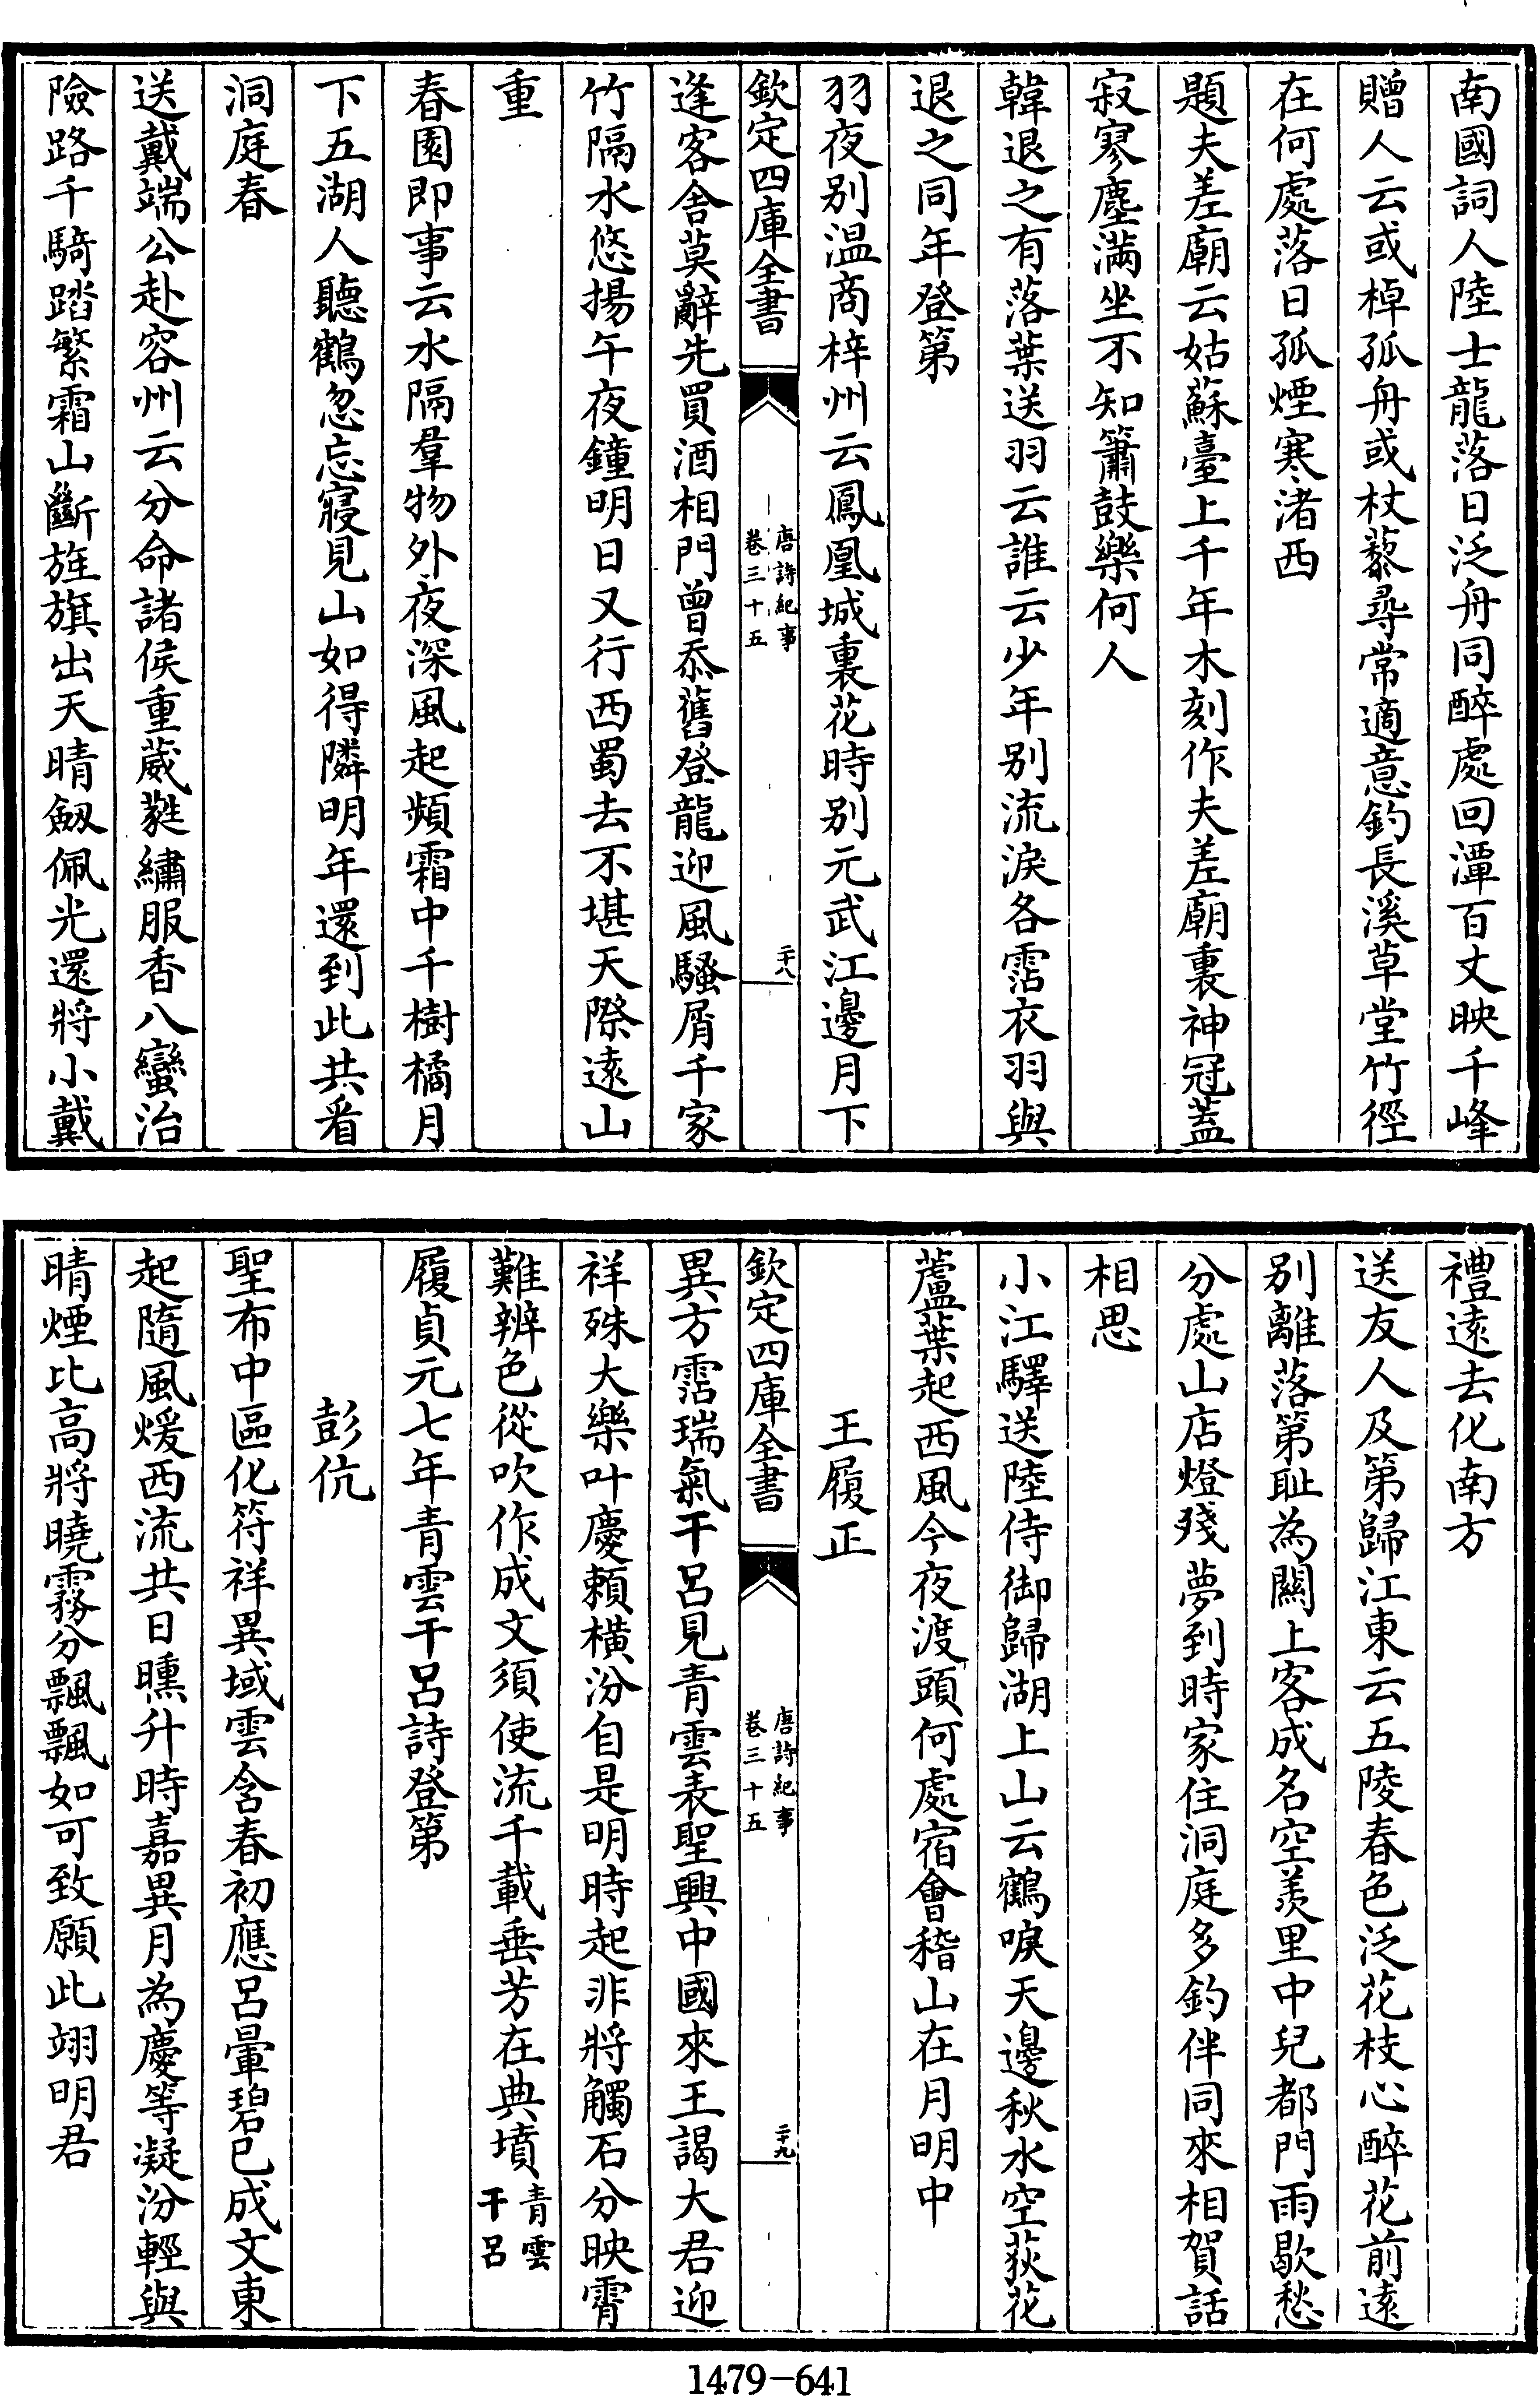 南國詞人陸士龍落日泛舟同醉處回潭百丈映千峰
贈人云或棹孤舟或杖藜尋常適意釣長溪草堂竹徑
在何處落日孤煙寒渚西
題夫差廟云姑蘇臺上千年木刻作夫差廟裏神冠蓋
寂寥塵滿坐不知簫鼓樂何人
韓退之有落葉送羽云誰云少年别流淚各霑衣羽與
退之同年登第
羽夜别温商梓州云鳳凰城裏花時别元武江邊月下
欽定四庫全書
唐詩紀事
卷三十五
二十八
逢客舍莫辭先買酒相門曾忝舊登龍迎風騷屑千家
竹隔水悠揚午夜鐘明日又行西蜀去不堪天際遠山
重
春園即事云水隔羣物外夜深風起頻霜中千樹橘月
下五湖人聽鶴忽忘寢見山如得隣明年還到此共看
洞庭春
送戴端公赴容州云分命諸侯重葳蕤繡服香八蠻治
險路千騎踏繁霜山斷旌旗出天晴劔佩光還將小戴
禮遠去化南方
送友人及第歸江東云五陵春色泛花枝心醉花前遠
别離落第恥為關上客成名空羡里中兒都門雨歇愁
分處山店燈殘夢到時家住洞庭多釣伴同來相賀話
相思
小江驛送陸侍御歸湖上山云鶴唳天邊秋水空荻花
蘆葉起西風今夜渡頭何處宿會稽山在月明中
王履正
欽定四庫全書
唐詩紀事
卷三十五
二十九
異方霑瑞氣干呂見青雲表聖興中國來王謁大君迎
祥殊大樂叶慶頼横汾自是明時起非將觸石分映霄
難辨色從吹作成文須使流千載垂芳在典墳青雲干呂
履貞元七年青雲干呂詩登第
彭伉
聖布中區化符祥異域雲含春初應呂暈碧已成文東
起隨風煖西流共日曛升時嘉異月為慶等凝汾輕與
晴煙比高將曉霧分飄飄如可致願此翊明君
1479-641